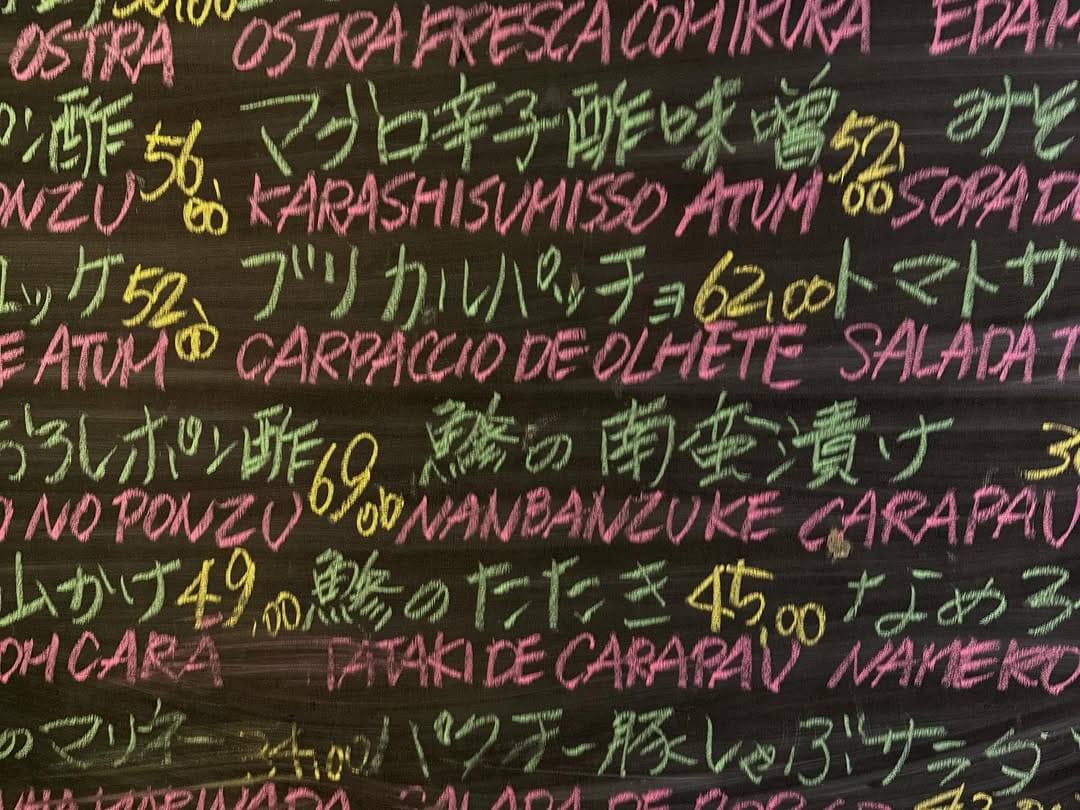 OSTRA OSTRA FRESCA COM IKURA EDAM
ン酢 56,00 マグロ辛子酢味噌 52,00 みそ
ONZU KARASHISUMISSO ATUM SOPA D
ュッケ 52,00 ブリカルパッチョ 62,00 トマトサ
E ATUM CARPACCIO DE OLHETE SALADA T
おろしポン酢 69,00 鯵の南蛮漬け 3
O NO PONZU NANBANZUKE CARAPAU
山かけ 49,00 鯵のたたき 45,00 なめろ
OM CARÁ TATAKI DE CARAPAU NAMERO
のマリネ 34,00 パクチー豚しゃぶサラダ
MARINADA SALADA DE PORCO